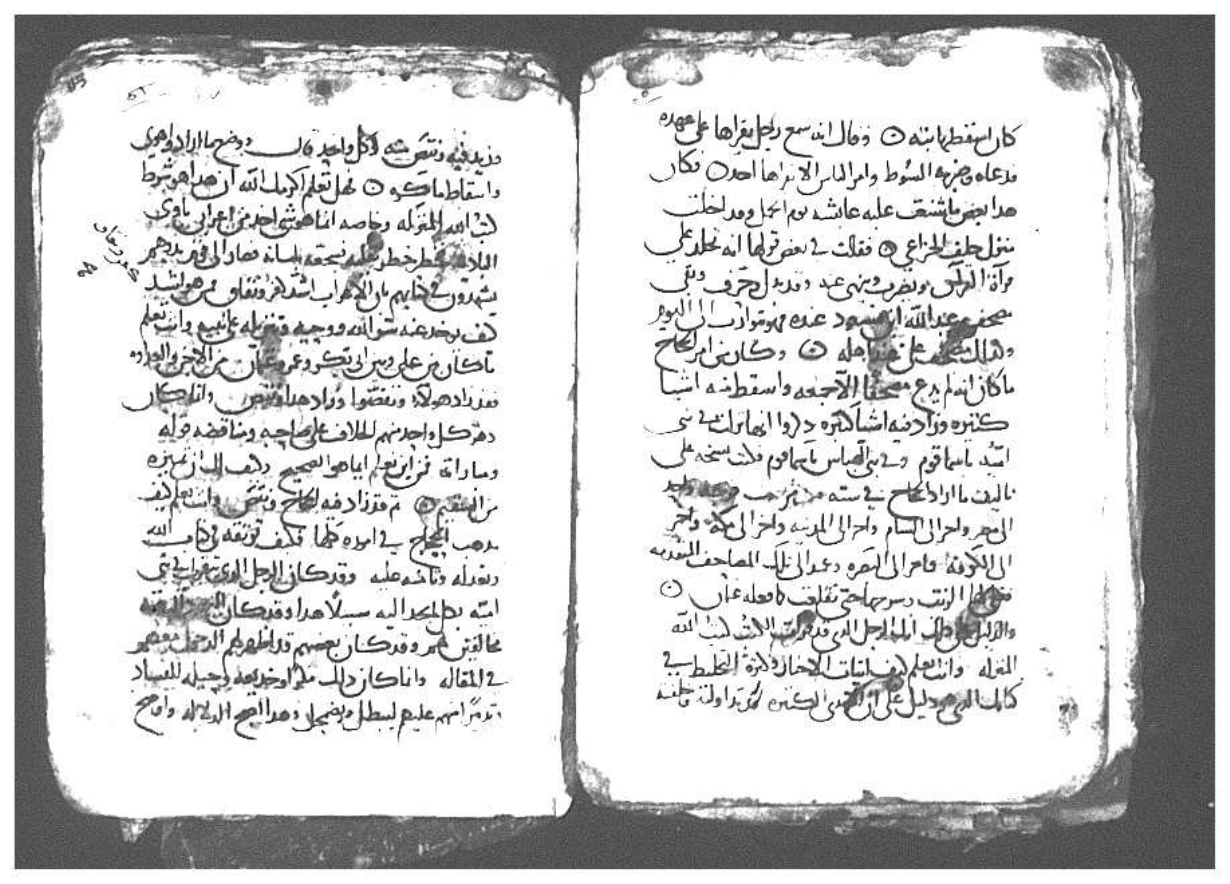 كان اسقط بها بته ۝ وقال انه سمع رجل يقراها على عهده
فدعاه وضربه السوط وامر الناس الا يقراها احد ۝ فكان
هذا بعض ما شنعت عليه عائشه يوم الجمل وقد دخلت
منزل خلف الخزاعي ۝ فقالت في بعض قولها انه يجلد على
قرآة القران ويضرب وينهى عنه وقد بدل وحرف وبقي
مصحف عبد الله ابن مسعود عنده فهو يتوارث الى اليوم
وكذلك مصحف علي عند اهله ۝ وكان من امر الحجاج
ما كان انه لم يدع مصحفا الا جمعه واسقط منه اشيا
كثيره وزاد فيه اشيا كثيره ذكروا انها نزلت في بني
اميه باسما قوم وفي بني العباس باسما قوم فكتب نسخه على
تاليف ما اراد الحجاج في سته مصاحف وجه واحد
الى مصر واخر الى الشام واخر الى المدينه واخر الى مكه واخر
الى الكوفه واخر الى البصره وعمد الى تلك المصاحف المتقدمه
الزيت وسرحها حتى تقلعت كما فعله عثمان ۝
والدليل على ذلك ايها الرجل الذي قد قرات الكتب كتب الله
المنزله وانت تعلم كيف اثبات الاخبار وكثرة التخليط في
كتابك الذي هو دليل على ان الايدي الكثيره قد تداولته واختلفت
وزيد فيه ونقص منه وكل واحد قال ووضع ما اراد واهوى
واسقاط ما كره ۝ فهل تعلم اكرمك الله ان هذا هو شرط
كتب الله المنزله وخاصه انما هو شي اخذ من اعرابي ياوي
البلاقع خطر خطر عليه نسجعه لسانه وصار الى قوم بدوهم
يشهدون في كتابهم بان الاعراب اشد كفرا ونفاق فمن هو اشد
كيف يوخذ عنه سر الله ووحيه وتنزيله على نبيه وانت تعلم
ما كان بين علي وبين ابي بكر وعمر وعثمان من الاحن والعداوه
فقد زاد هولاء ونقصوا وزاد هذا ونقص وانما كان
دهر كل واحد منهم الخلاف على صاحبه ومناقضه قوله
ومساراته فمن اين نعلم ايما هو الصحيح وكيف السبيل ان نميزه
من السقيم ۝ ثم قد زاد فيه الحجاج ونقص وانت تعلم كيف
مذهب الحجاج في اموره كلها فكيف توثقه في كتاب الله
وتعدله وتامنه عليه وقد كان الرجل الذي تتقرب الى بني
اميه بكل ما يجد اليه سبيلا هذا وقد كان اليهود
مخالفين لهم وقد كان بعضهم قد اظهر لهم الدخول معهم
في المقاله وانما كان ذلك مكرا وخديعه وحيله للفساد
تدميرا منهم عليهم ليبطل ويضمحل وهذا اصح الدلاله واوضح